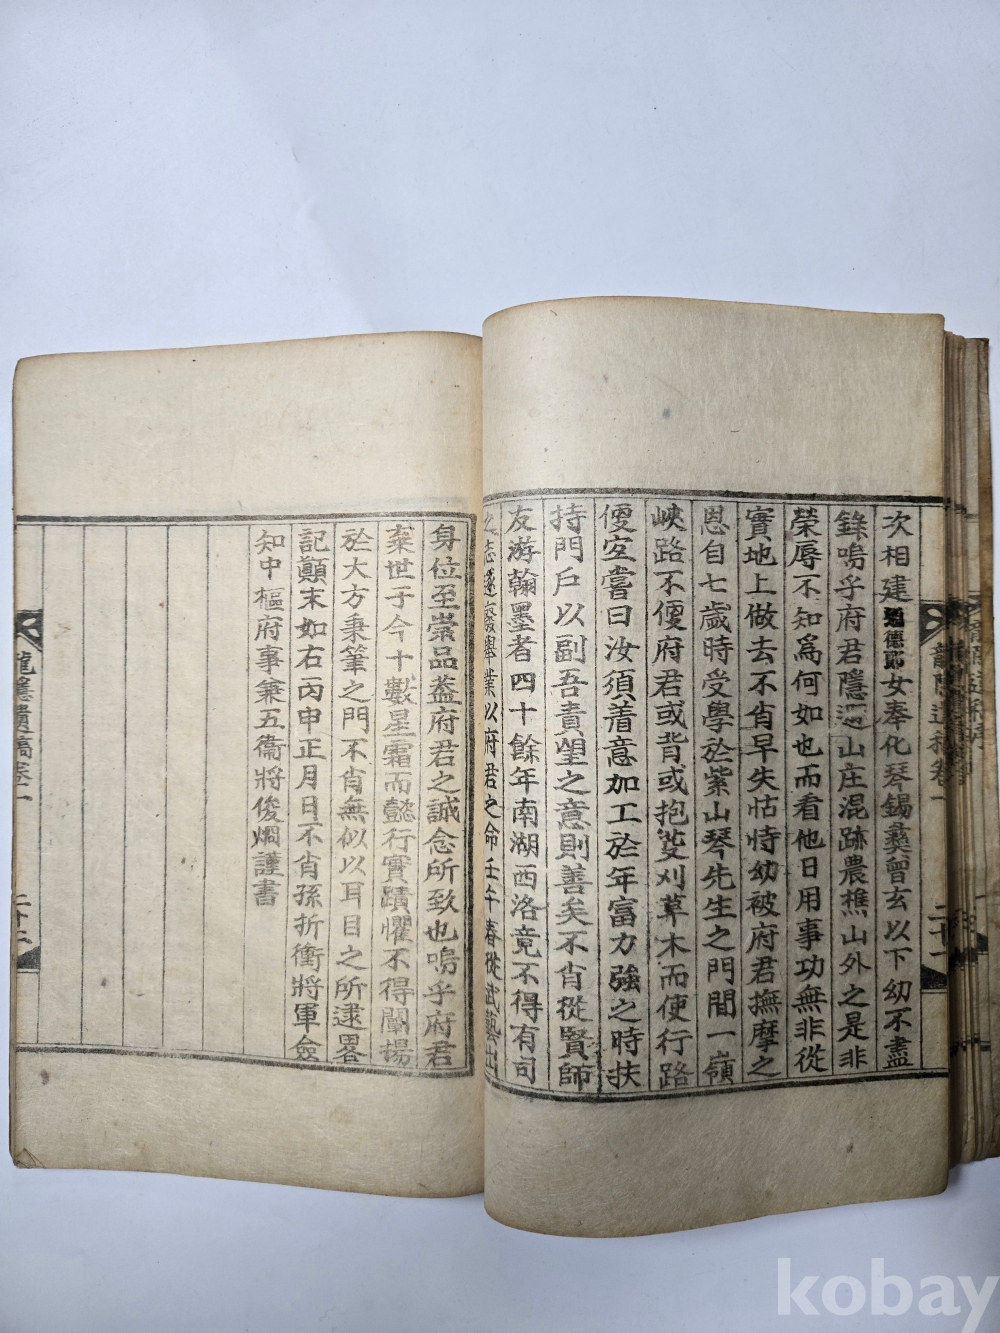 次相建
德郎女奉化琴錫彜曾玄以下幼不盡
錄嗚乎府君隱山庄混跡農樵山外之是非
榮辱不知爲何如也而看他日用事功無非從
實地上做去不肖早失怙恃幼被府君撫摩之
恩自七歲時受學於紫山琴先生之門間一嶺
峽路不便府君或背或抱芟刈草木而使行路
便安嘗曰汝須着意加工於年富力強之時扶
持門戶以副吾責望之意則善矣不肖從賢師
友游翰墨者四十餘年南湖西洛竟不得有司
志遂廢擧業以府君之命壬午春從武藝出
身位至崇品蓋府君之誠念所致也嗚乎府君
棄世于今十數星霜而懿行實蹟懼不得闡揚
於大方秉筆之門不肖無似以耳目之所逮畧
記顚末如右丙申正月日不肖孫折衝將軍僉
知中樞府事兼五衛將俊烱謹書
龍隱遺稿卷一
二十二
龍隱遺稿卷一
二十一
kobay